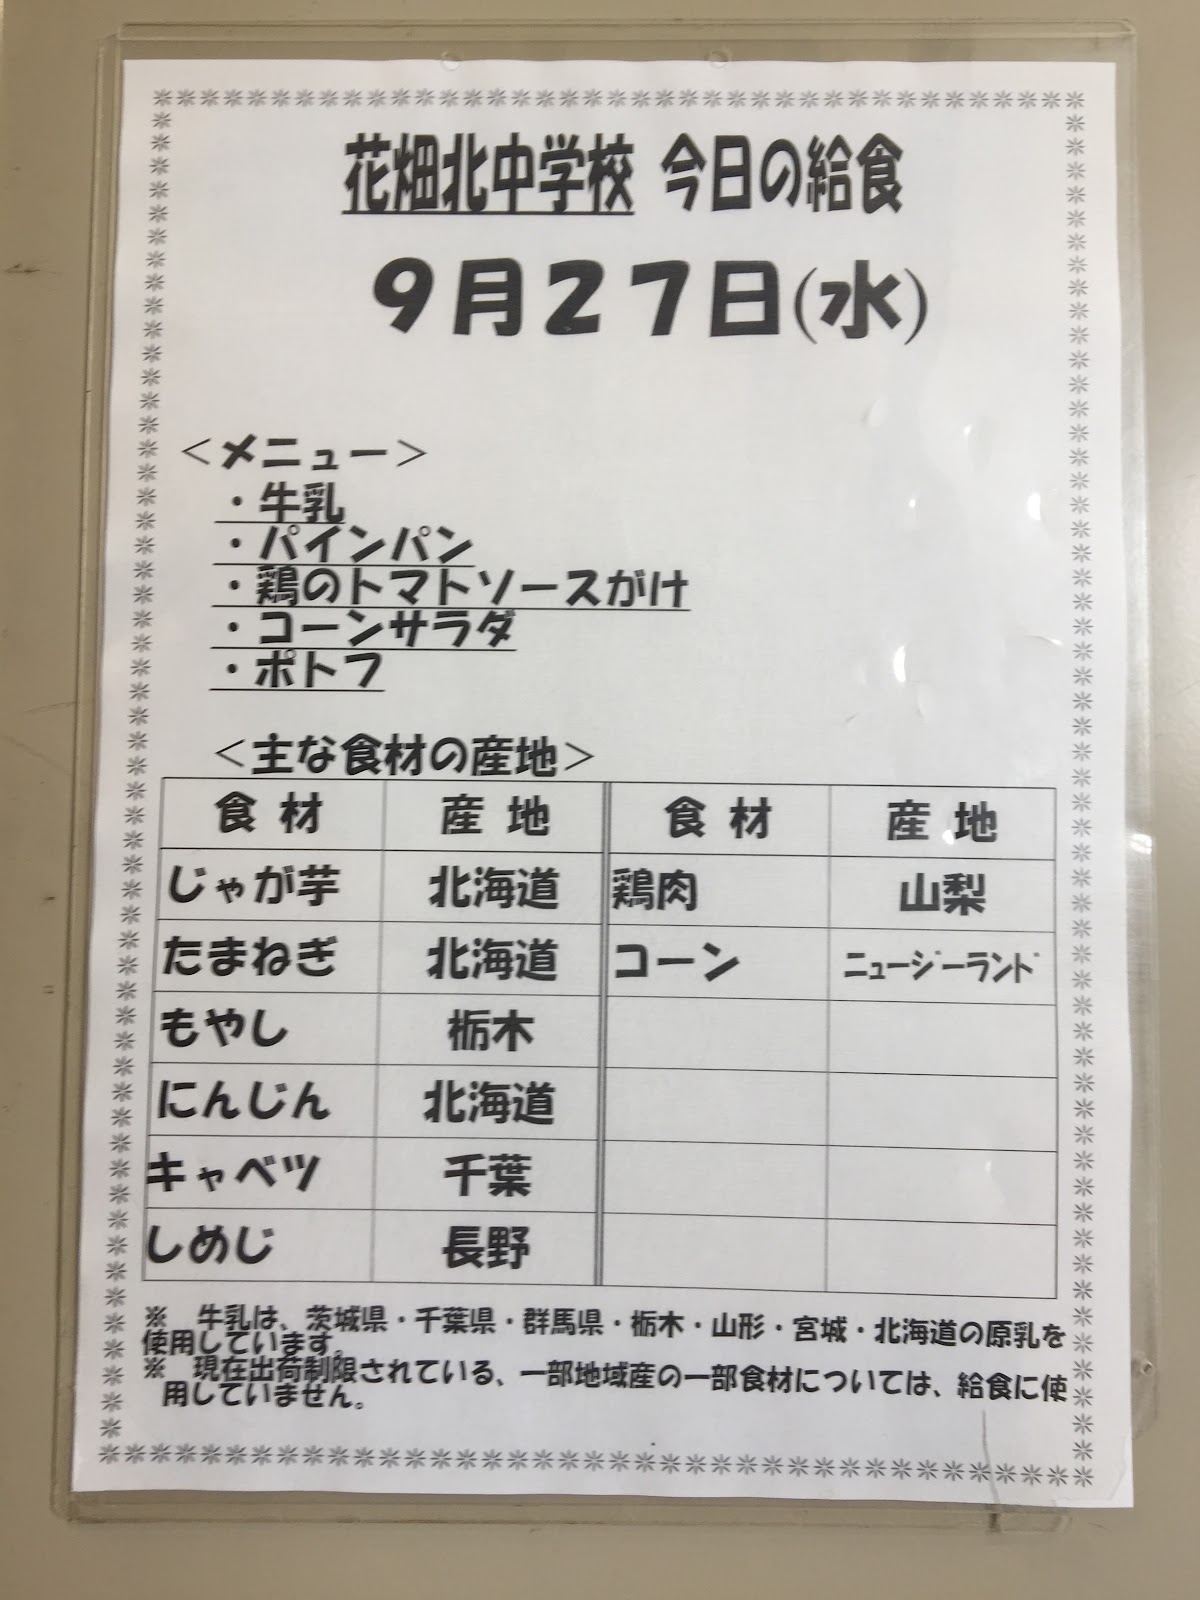 花畑北中学校 今日の給食
9月27日(水)
＜メニュー＞
・牛乳
・パインパン
・鶏のトマトソースがけ
・コーンサラダ
・ポトフ
＜主な食材の産地＞
食材 産地 食材 産地
じゃが芋 北海道 鶏肉 山梨
たまねぎ 北海道 コーン ﾆｭｰｼﾞｰﾗﾝﾄﾞ
もやし 栃木
にんじん 北海道
キャベツ 千葉
しめじ 長野
※ 牛乳は、茨城県・千葉県・群馬県・栃木・山形・宮城・北海道の原乳を
使用しています。
※ 現在出荷制限されている、一部地域産の一部食材については、給食に使
用していません。